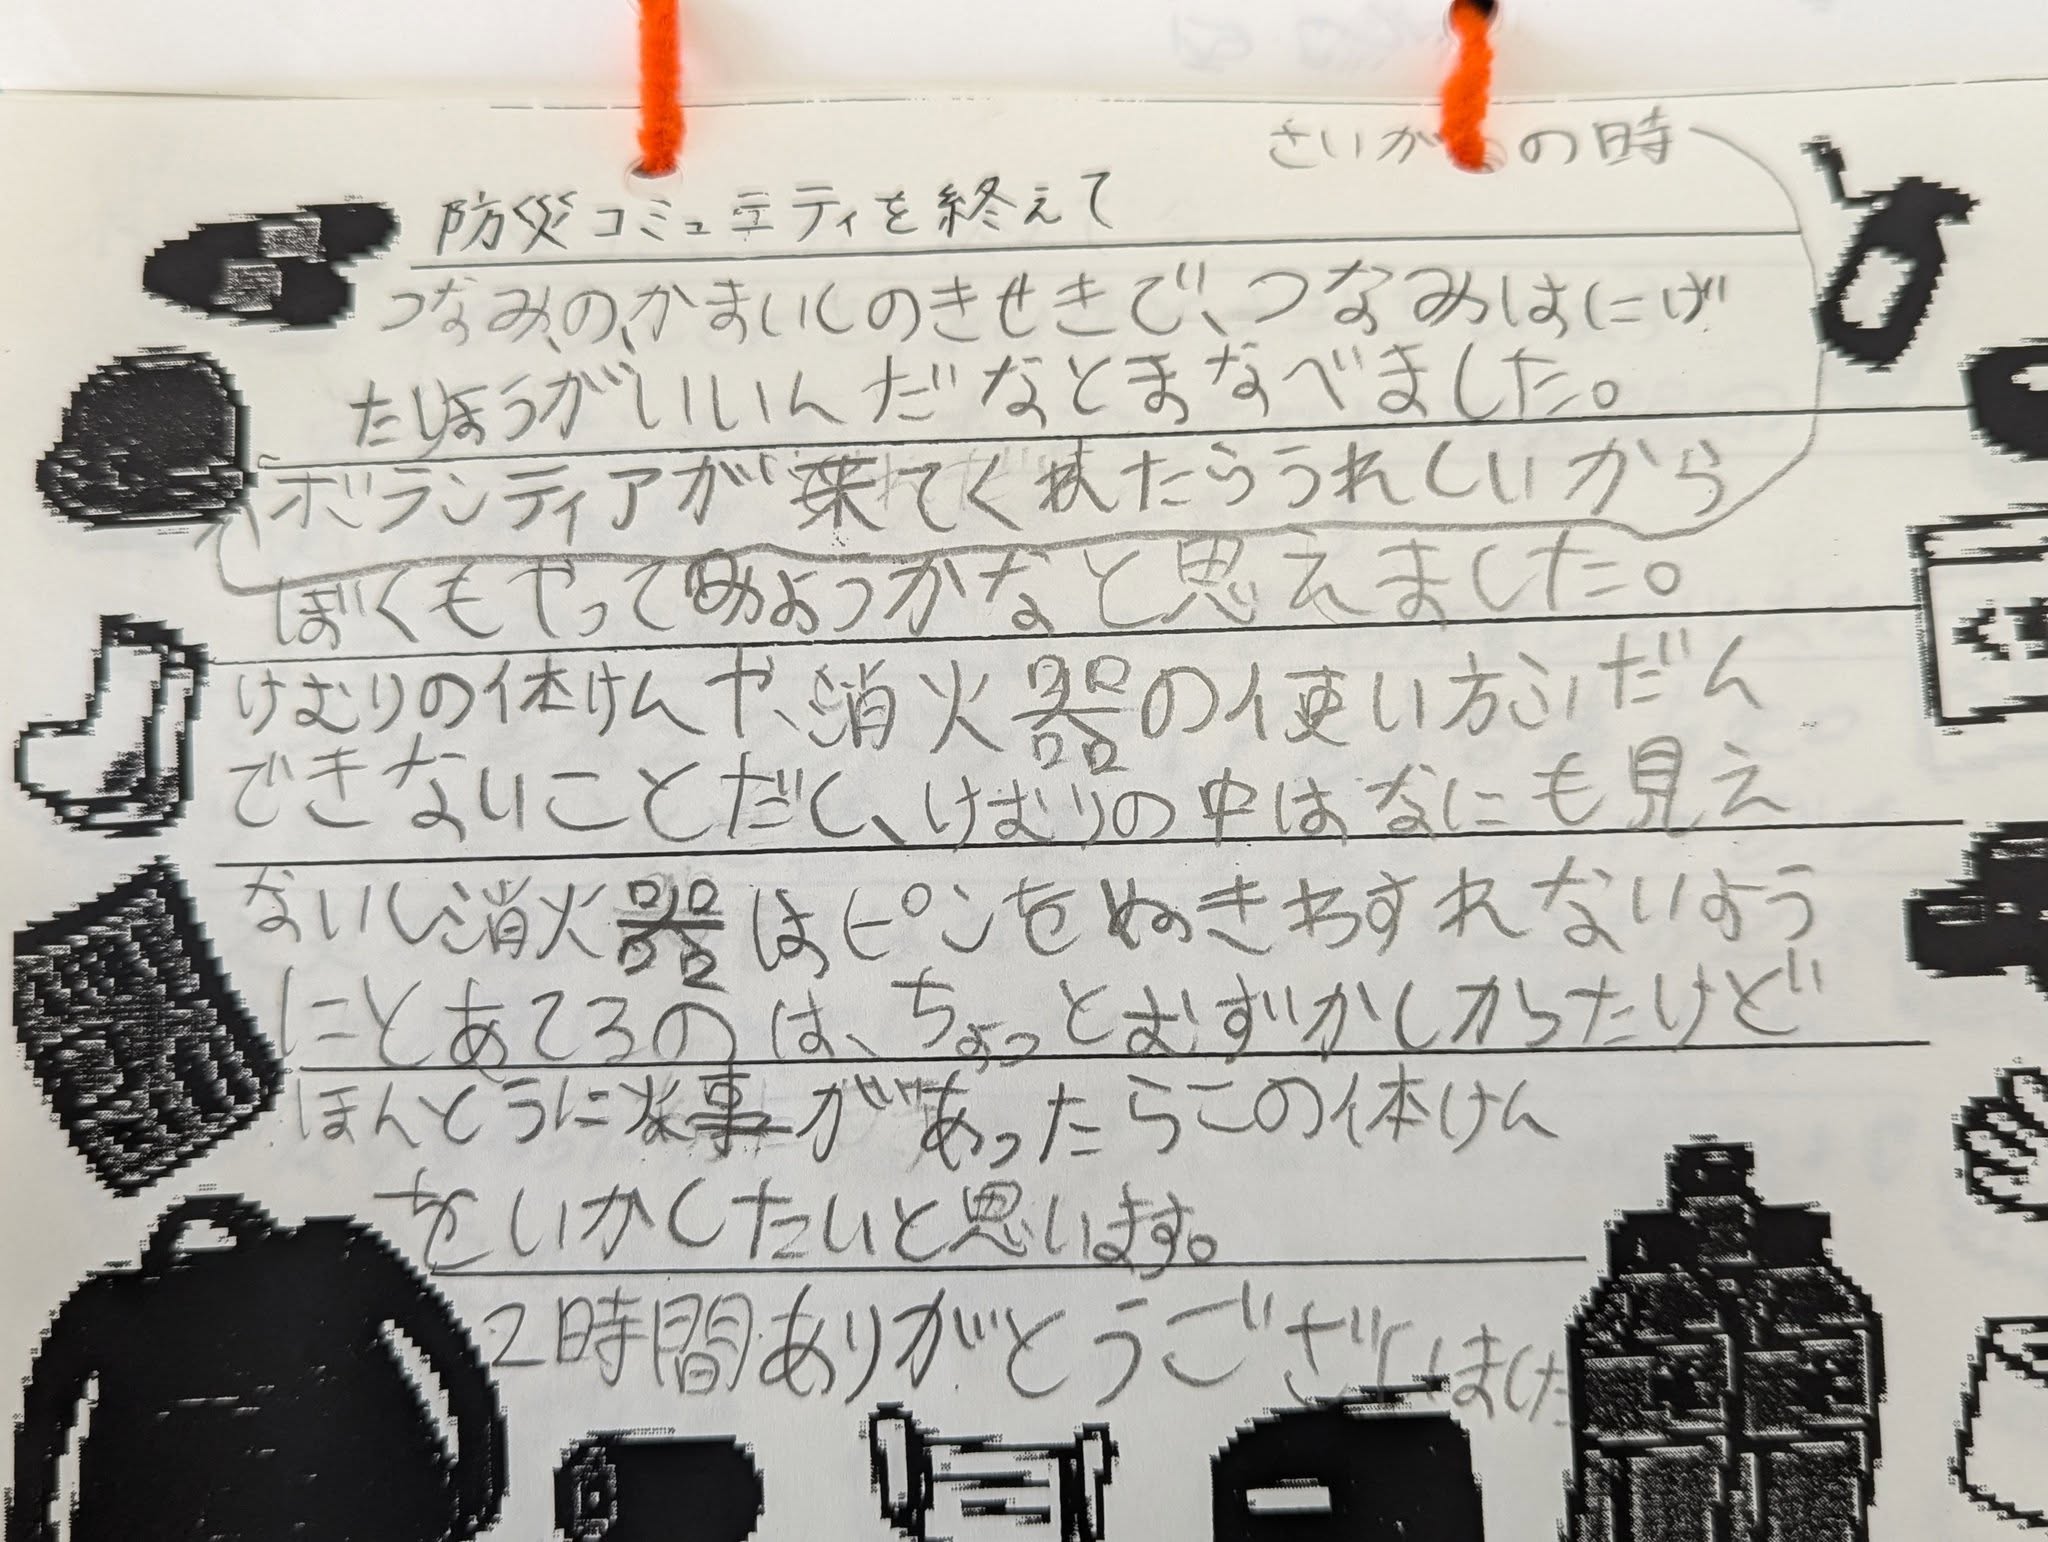 さいがいの時
防災コミュニティを終えて
つなみの、かまいしのきせきで、つなみはにげ
たほうがいいんだなとまなべました。
ボランティアが来てくれたらうれしいから
ぼくもやってみようかなと思えました。
けむりの体けんや、消火器の使い方ふだん
できないことだし、けむりの中はなにも見え
ないし消火器はピンをぬきわすれないよう
にとあてるのは、ちょっとむずかしかったけど
ほんとうに火事があったらこの体けん
をいかしたいと思います。
2時間ありがとうございました